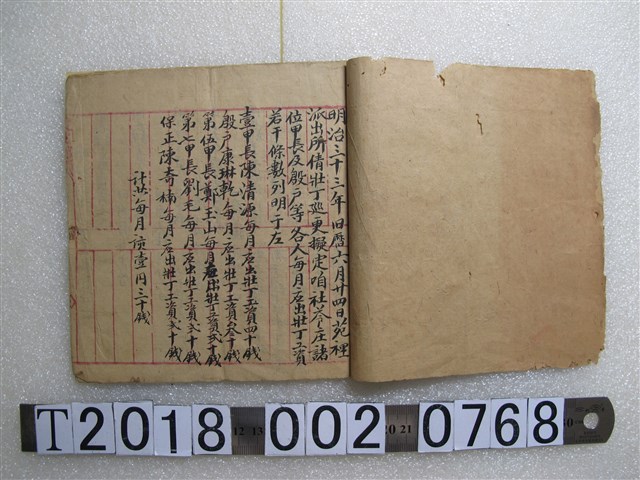 明治三十三年旧曆六月廿四日苑裡
派出所倩壯丁巡更擬定咱社苓庄諸
位甲長及殷户等各人每月应出壯丁工資
若干條數列明于左
壹甲長陳清源每月应出壯丁工資四十錢
殷户康琳乾每月应出壯丁工資叁十錢
第伍甲長鄭玉山每月应出壯丁工資弍十錢
第七甲長劉毛每月应出壯丁工資弍十錢
保正陳奇楠每月应出壯丁工資弍十錢
計共每月 壹円三十錢
T2018 002 0768
12 13 20 21 30